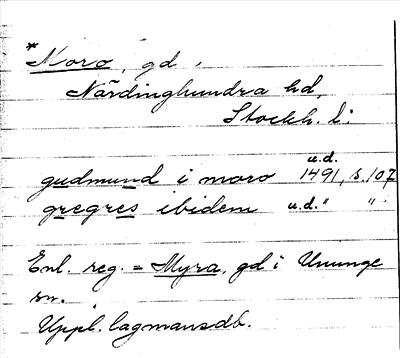 *Moro, gd,
Närdinghundra hd,
Stockh. l:
gudmund i moro u.d. 1491, s. 107
gregres ibidem u.d." "
Enl. reg. = Myra, gd i Ununge
sn.
Uppl. lagmansdb.